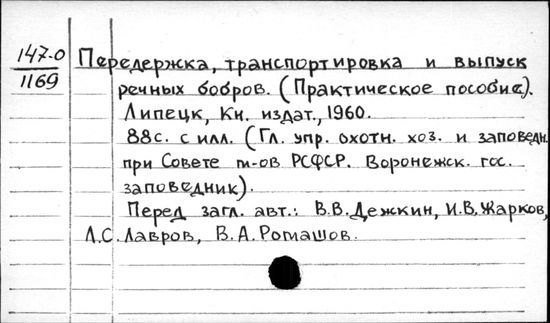 147-0
1169
Передержка, транспортировка и выпуск
речных бобров. (Практическое пособие).
Липецк, Кн. издат., 1960.
88с. с илл. (Гл. упр. охотн. хоз. и заповедн.
при Совете м-ов РСФСР. Воронежск. гос.
заповедник).
Перед загл. авт.: В.В. Дежкин, И.В. Жарков,
Л.С. Лавров, В.А. Ромашов.